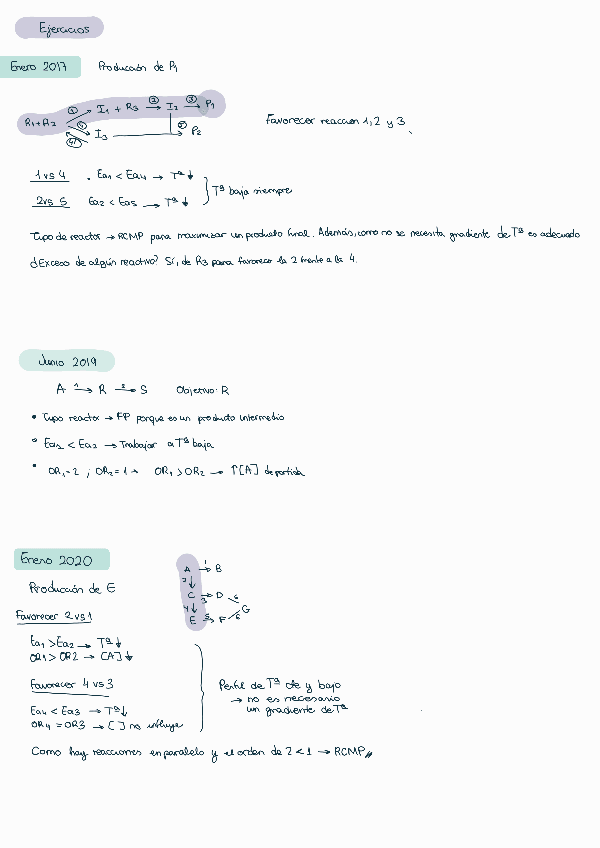 Ejercicios
Enero 2017 Producción de P1
R1+R2 ① I1 + R3 ② I2 ③ P1
④ I3 ⑤ P2
Favorecer reacción 1, 2 y 3
1 vs 4 . Ea1 < Ea4 → Tª ↓
2 vs 5 Ea2 < Ea5 → Tª ↓
Tª baja siempre
Tipo de reactor → RCMP para maximizar un producto final. Además, como no se necesita gradiente de Tª es adecuado
¿Exceso de algún reactivo? Sí, de R3 para favorecer la 2 frente a la 4.
Junio 2019
A 1→ R 2→ S Objetivo: R
• Tipo reactor → FP porque es un producto intermedio
• Ea1 < Ea2 → Trabajar a Tª baja
• OR1=2 ; OR2=1 → OR1 > OR2 → ↑[A] de partida
Enero 2020
Producción de E
A 1→ B
2↓
C 3→ D 6
4↓ G
E 5→ F 6
Favorecer 2 vs 1
Ea1 > Ea2 → Tª ↓
OR1 > OR2 → [A] ↓
Favorecer 4 vs 3
Ea4 < Ea3 → Tª ↓
OR4 = OR3 → [ ] no influye
Perfil de Tª cte y bajo
→ no es necesario
un gradiente de Tª
Como hay reacciones en paralelo y el orden de 2 < 1 → RCMP